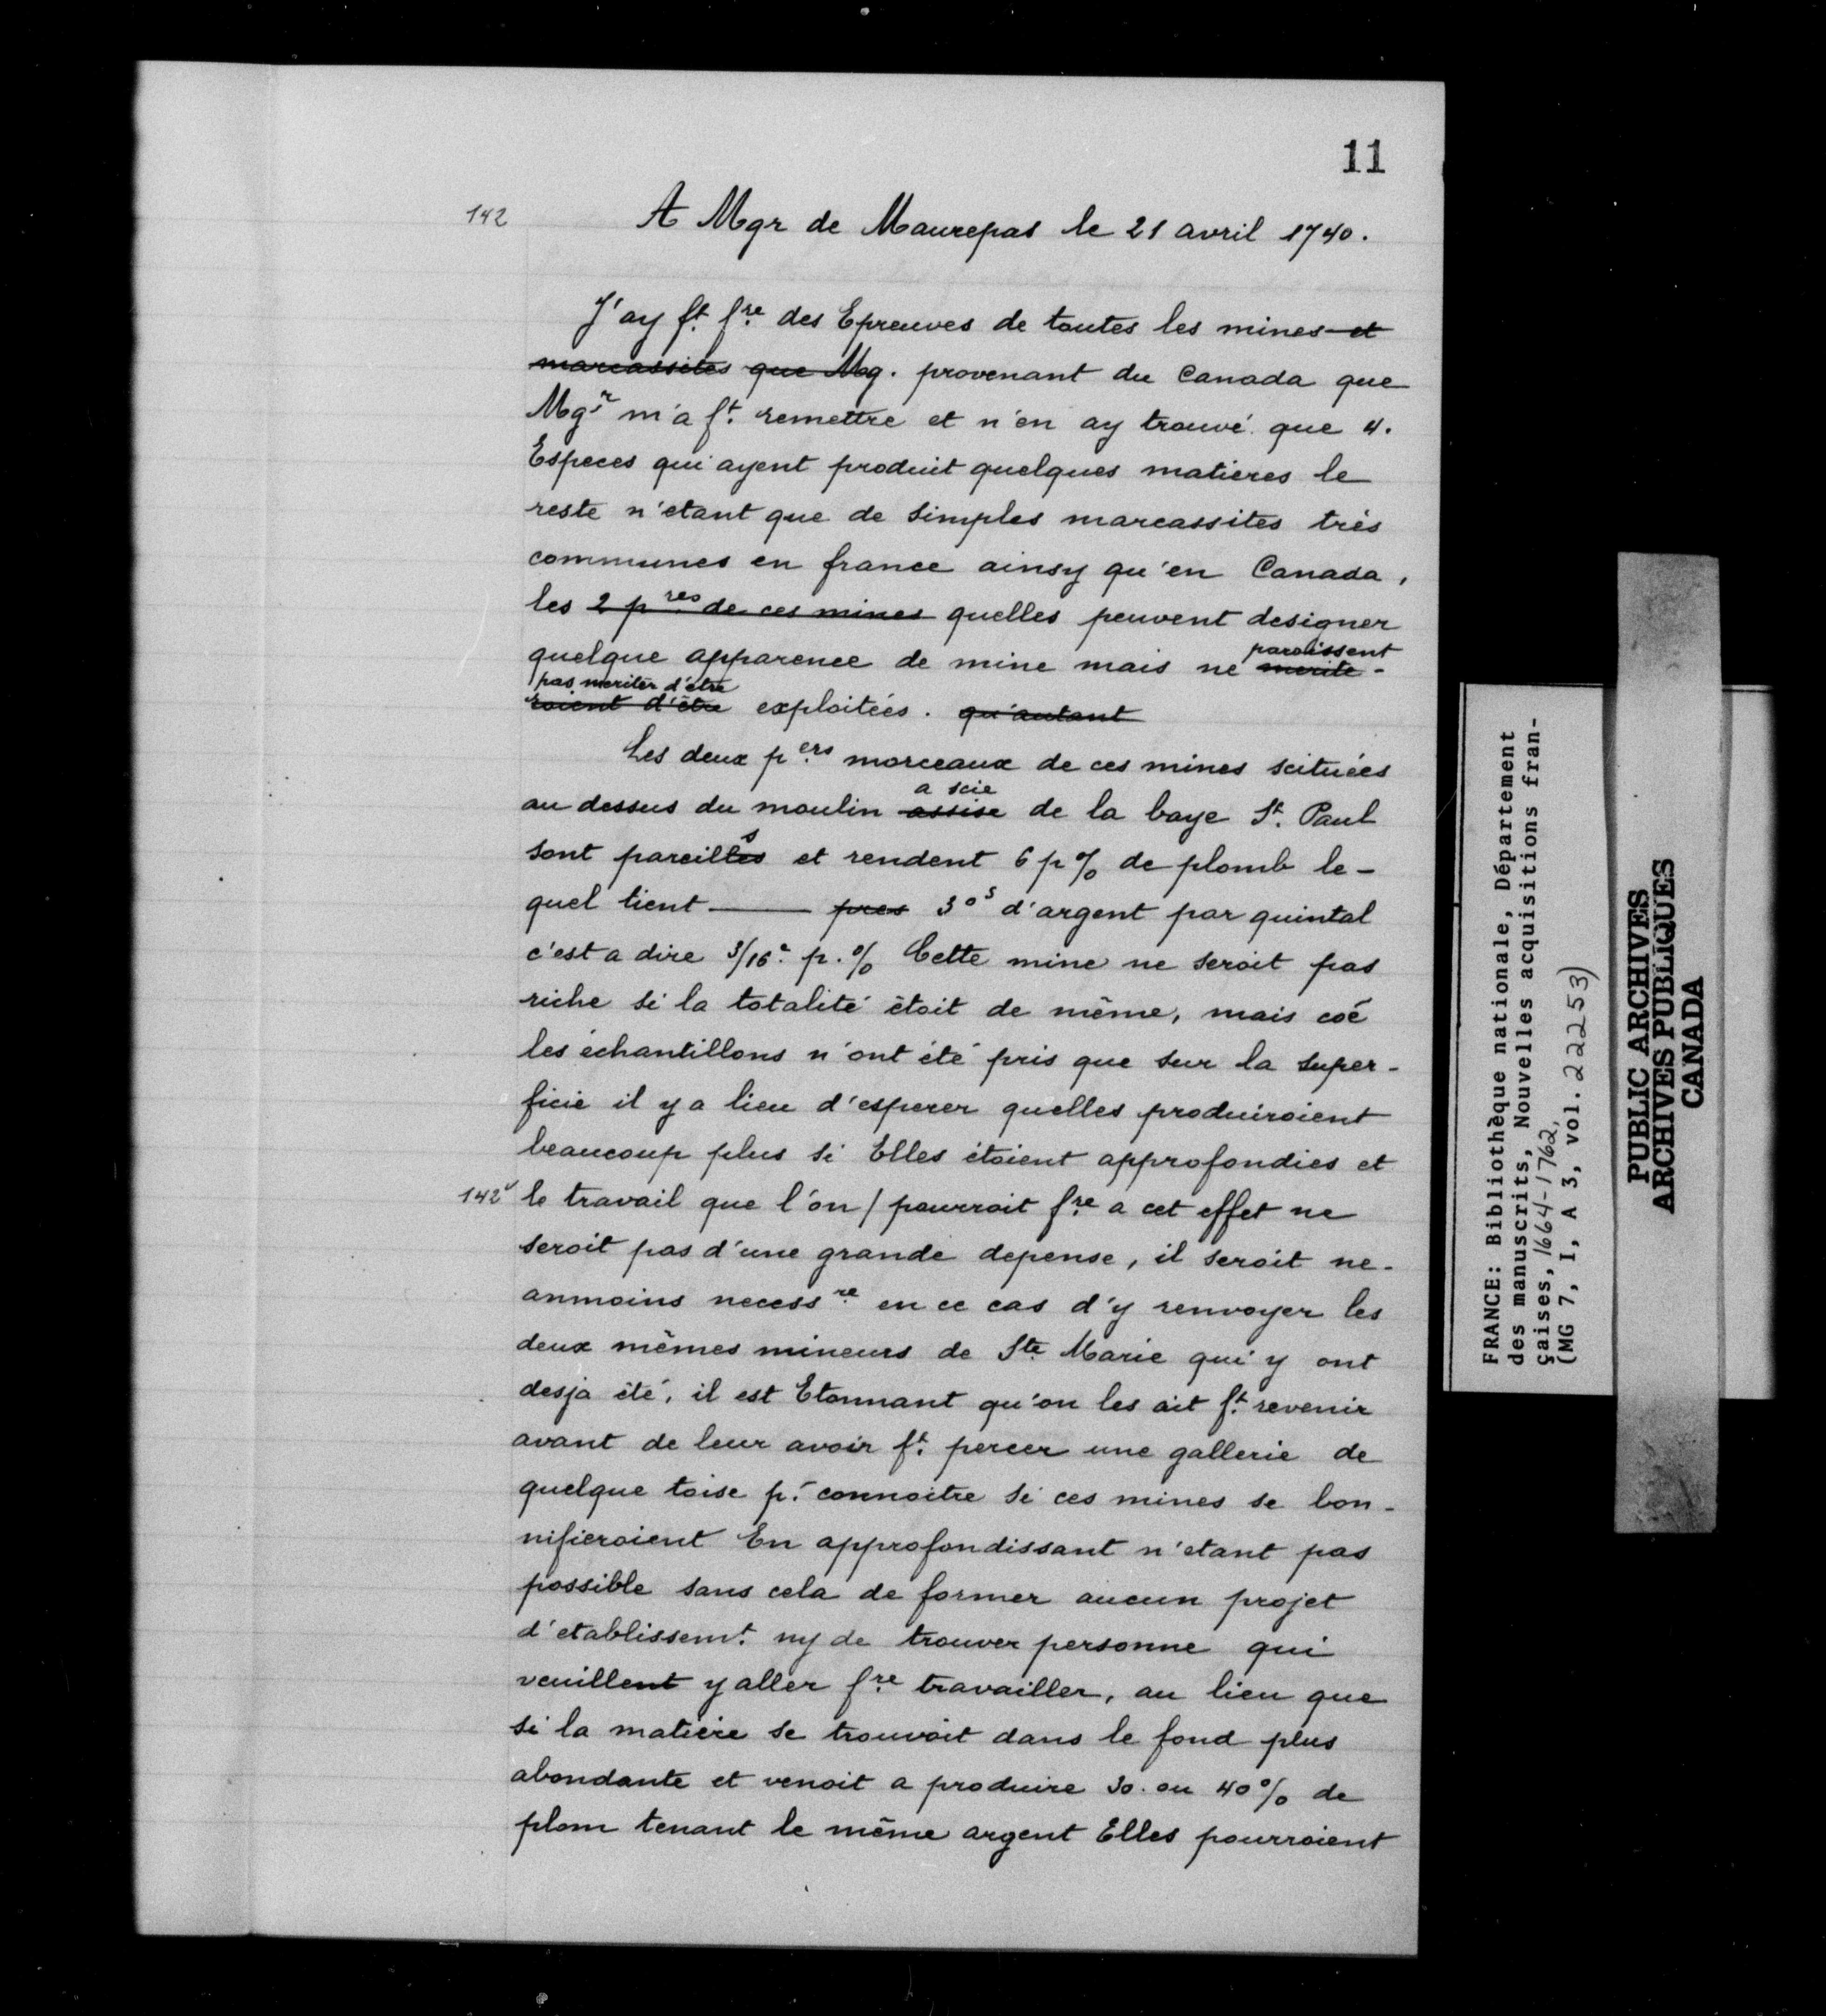 11
142 A Mgr de Maurepas le 21 avril 1740.
J'ay ft. fre. des Epreuves de toutes les mines et
marcassites que Mg. provenant du Canada que
Mgr m'a ft. remettre et n'en ay trouvé que 4.
Especes qui ayent produit quelques matieres le
reste n'etant que de simples marcassites trés
communes en france ainsy qu'en Canada,
les 2 pres de ces mines quelles peuvent designer
quelque apparence de mine mais ne merite- paroissent
roient d'être pas meriter d'etre exploitées. qu'autant
Les deux pers morceaux de ces mines scituées
au dessus du moulin assise a scie de la baye St. Paul
sont pareilles et rendent 6 p % de plomb le-
quel tient — pres 3os d'argent par quintal
c'est a dire 3/16e. p. % Cette mine ne seroit pas
riche si la totalité étoit de même, mais coé
les échantillons n'ont été pris que sur la super-
ficie il y a lieu d'esperer quelles produiroient
beaucoup plus si Elles étoient approfondies et
142v le travail que l'on / pourroit fre a cet effet ne
seroit pas d'une grande depense, il seroit ne-
anmoins necessre en ce cas d'y renvoyer les
deux mêmes mineurs de Ste. Marie qui y ont
desja été, il est Etonnant qu'on les ait ft. revenir
avant de leur avoir ft. percer une gallerie de
quelque toise p.r connoitre si ces mines se bon-
nifieroient En approfondissant n'etant pas
possible sans cela de former aucun projet
d'etablissemt. ny de trouver personne qui
veuillent y aller fre travailler, au lieu que
si la matiére se trouvoit dans le fond plus
abondante et venoit a produire 30. ou 40 % de
plom tenant le même argent Elles pourroient
FRANCE: Bibliothèque nationale, Département
des manuscrits, Nouvelles acquisitions fran-
çaises, 1664-1762,
(MG 7, I, A 3, vol. 22253)
PUBLIC ARCHIVES
ARCHIVES PUBLIQUES
CANADA